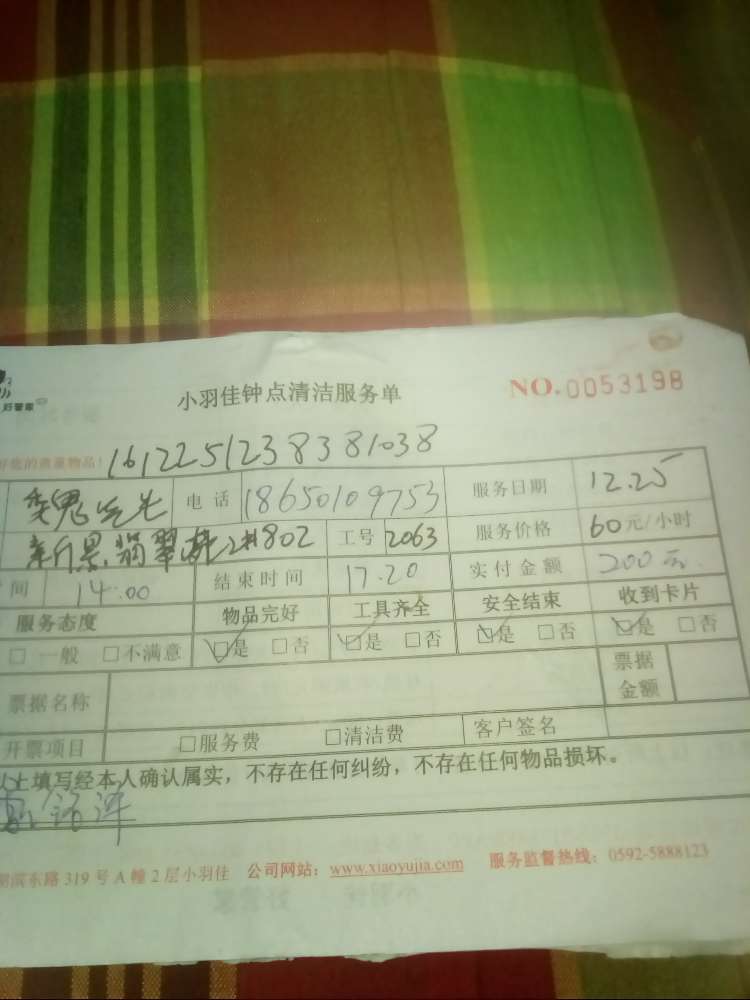 好管家
小羽佳钟点清洁服务单
NO.0053198
的贵重物品! 1612251238381038
魏先生 电话 18650109753 服务日期 12.25
新景.翡翠 2#802 工号 2063 服务价格 60元/小时
间 14.00 结束时间 17.20 实付金额 200元.
服务态度 物品完好 工具齐全 安全结束 收到卡片
□一般 □不满意 □是 □否 □是 □否 □是 □否 □是 □否
票据名称 票据金额
开票项目 □服务费 □清洁费 客户签名
以上填写经本人确认属实，不存在任何纠纷，不存在任何物品损坏。
湖滨东路319号A幢2层小羽佳 公司网站：www.xiaoyujia.com 服务监督热线：0592-5888123